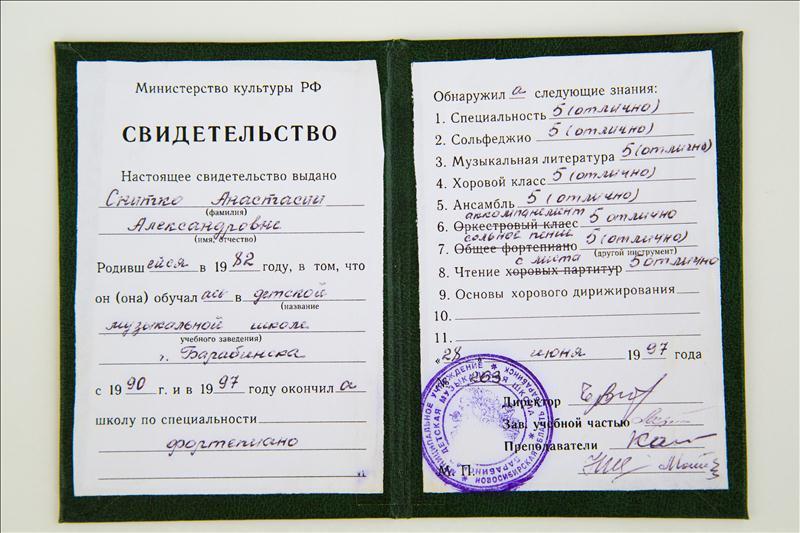 Министерство культуры РФ
СВИДЕТЕЛЬСТВО
Настоящее свидетельство выдано
Снитко Анастасии
(фамилия)
Александровне
(имя, отчество)
Родившейся в 1982 году, в том, что
он (она) обучалась в детской
(название
музыкальной школе
учебного заведения)
г. Барабинска
с 1990 г. и в 1997 году окончила
школу по специальности
фортепиано
Обнаружила следующие знания:
1. Специальность 5 (отлично)
2. Сольфеджио 5 (отлично)
3. Музыкальная литература 5 (отлично)
4. Хоровой класс 5 (отлично)
5. Ансамбль 5 (отлично)
аккомпанемент
6. Оркестровый класс 5 отлично
сольное пение
7. Общее фортепиано 5 (отлично)
с листа (другой инструмент)
8. Чтение хоровых партитур 5 отлично
9. Основы хорового дирижирования
10.
11.
"28 июня 1997 года
269
Директор
Зав. учебной частью
Преподаватели
М. П.
МУНИЦИПАЛЬНОЕ УЧРЕЖДЕНИЕ
ДЕТСКАЯ МУЗЫКАЛЬНАЯ ШКОЛА
НОВОСИБИРСКАЯ ОБЛАСТЬ